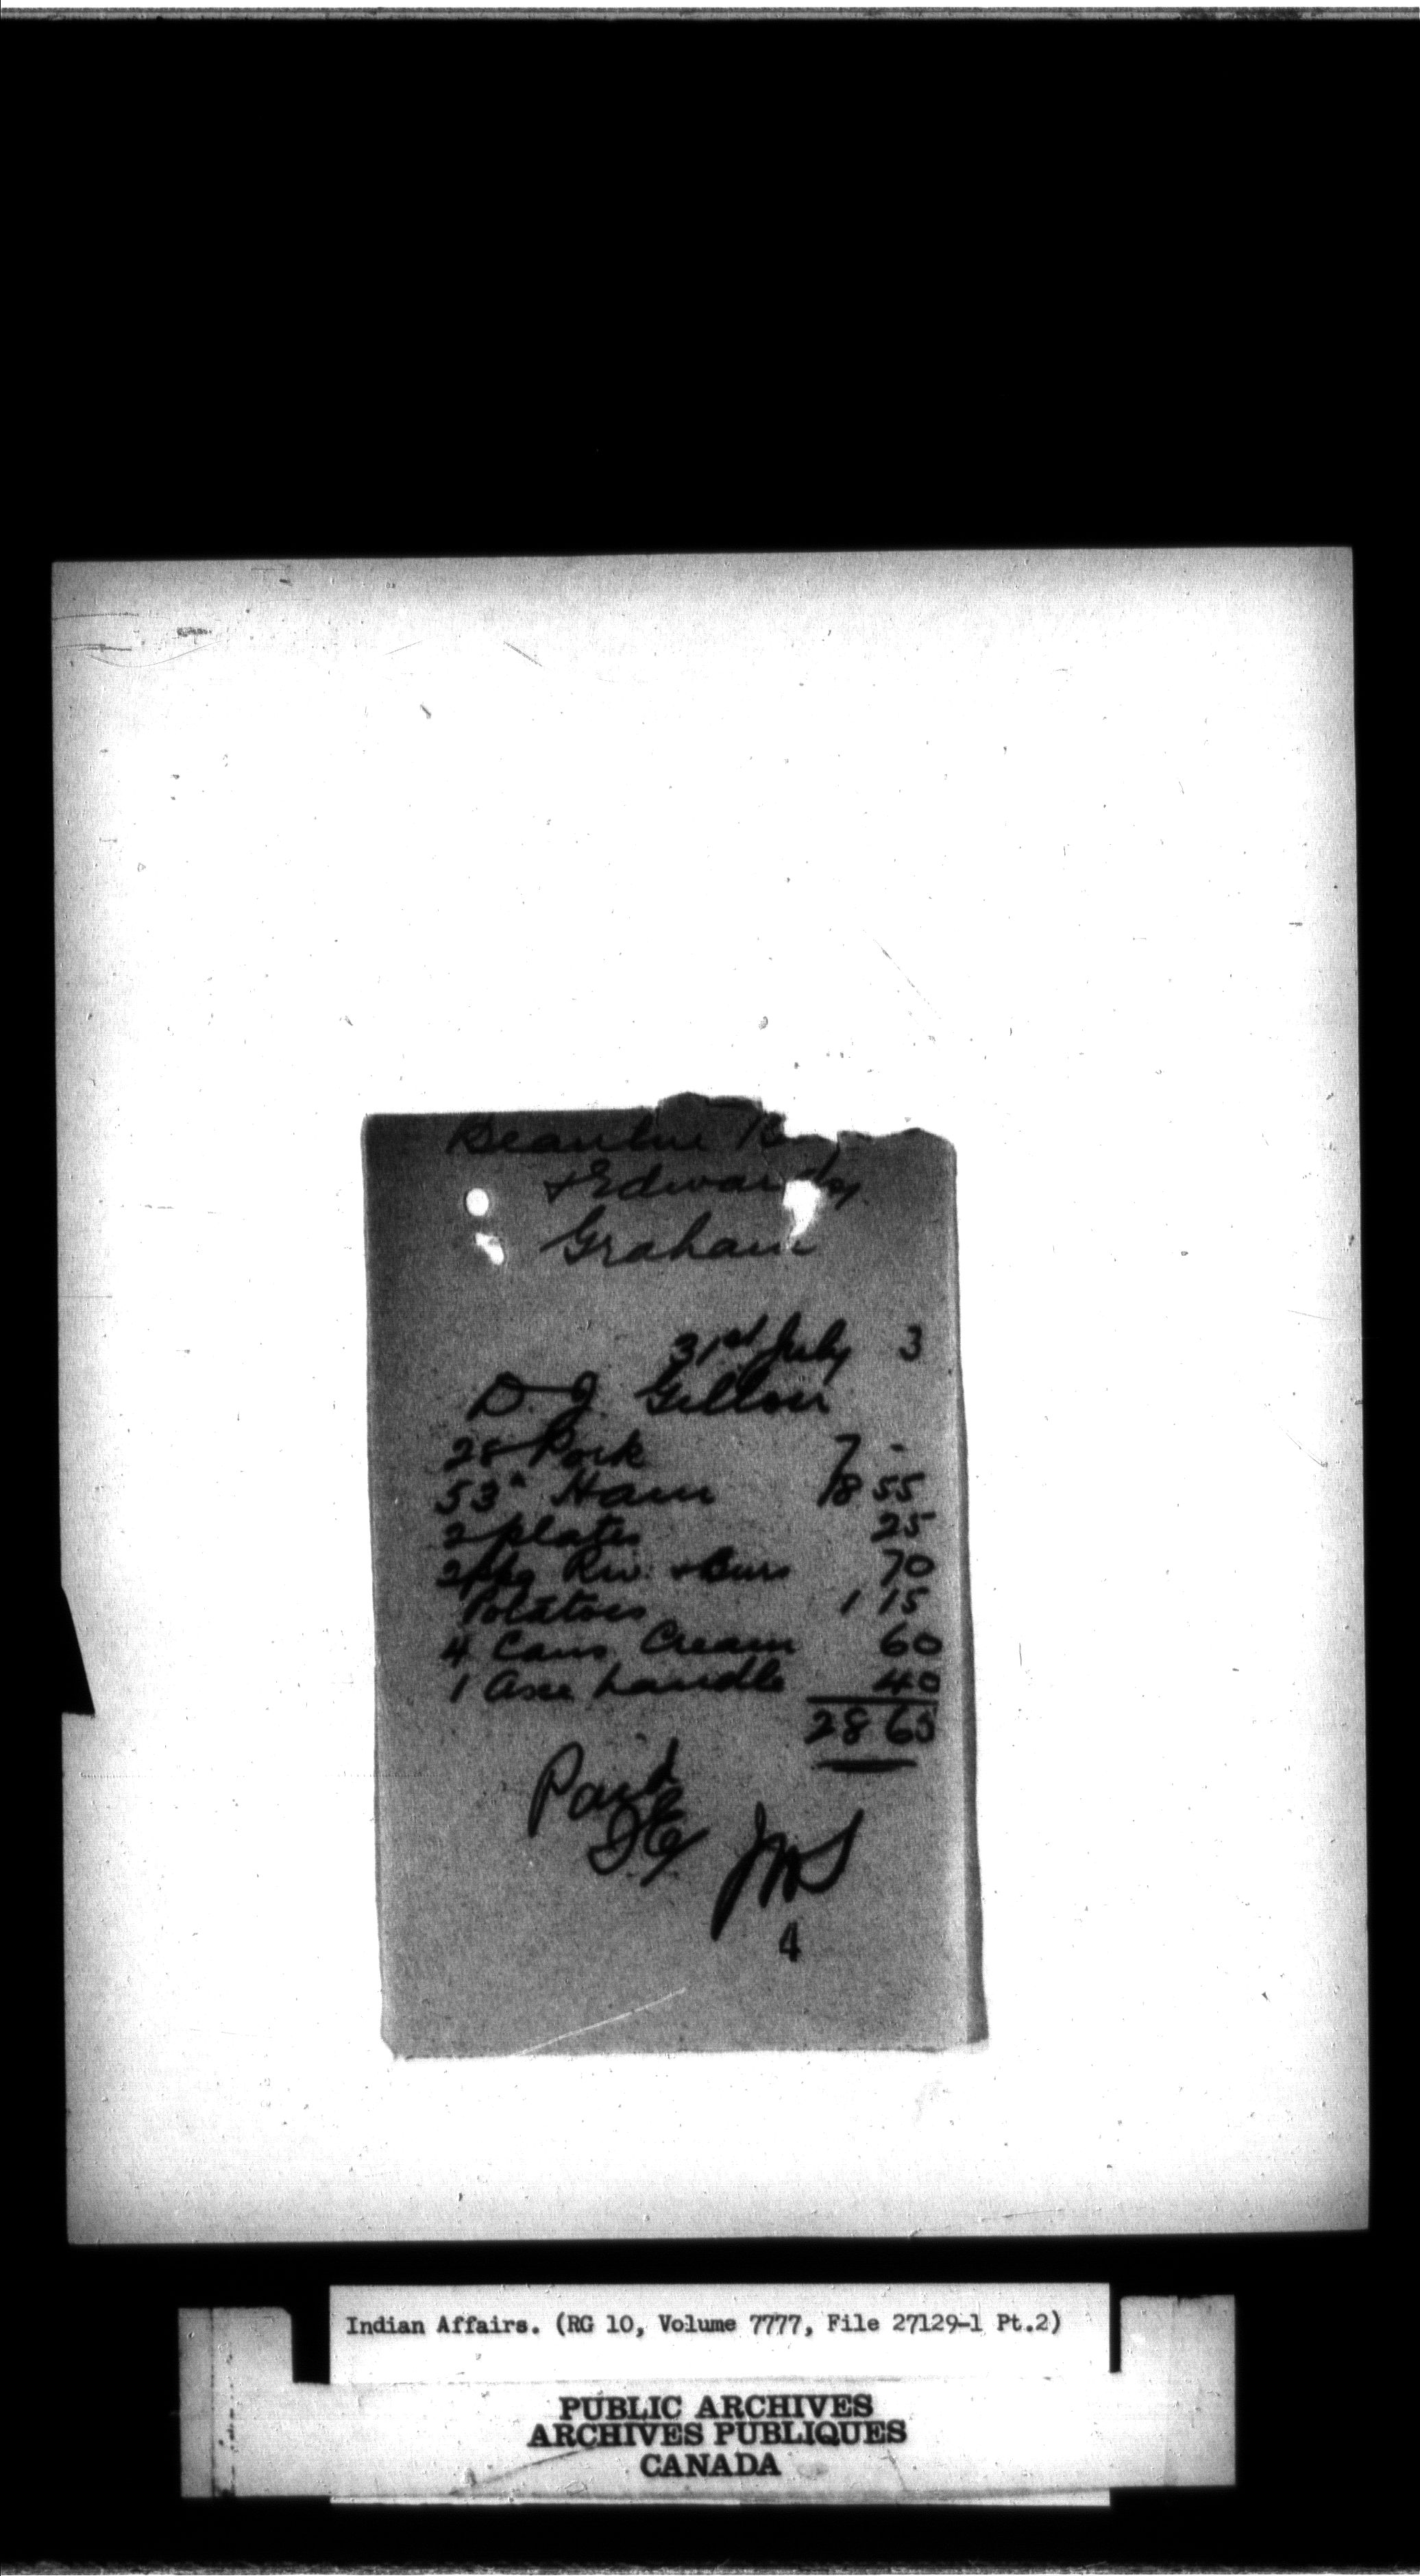 Beaulne B
& Edwards
Graham
31st July 3
D. J. Gillon
28 Pork 7 -
53" Ham 18 55
2 plates 25
2 pkg Riv. & Burs 70
Potatoes 1 15
4 Cans Cream 60
1 Axe handle 40
28 65
Paid
JMS
4
Indian Affairs. (RG 10, Volume 7777, File 27129-1 Pt.2)
PUBLIC ARCHIVES
ARCHIVES PUBLIQUES
CANADA